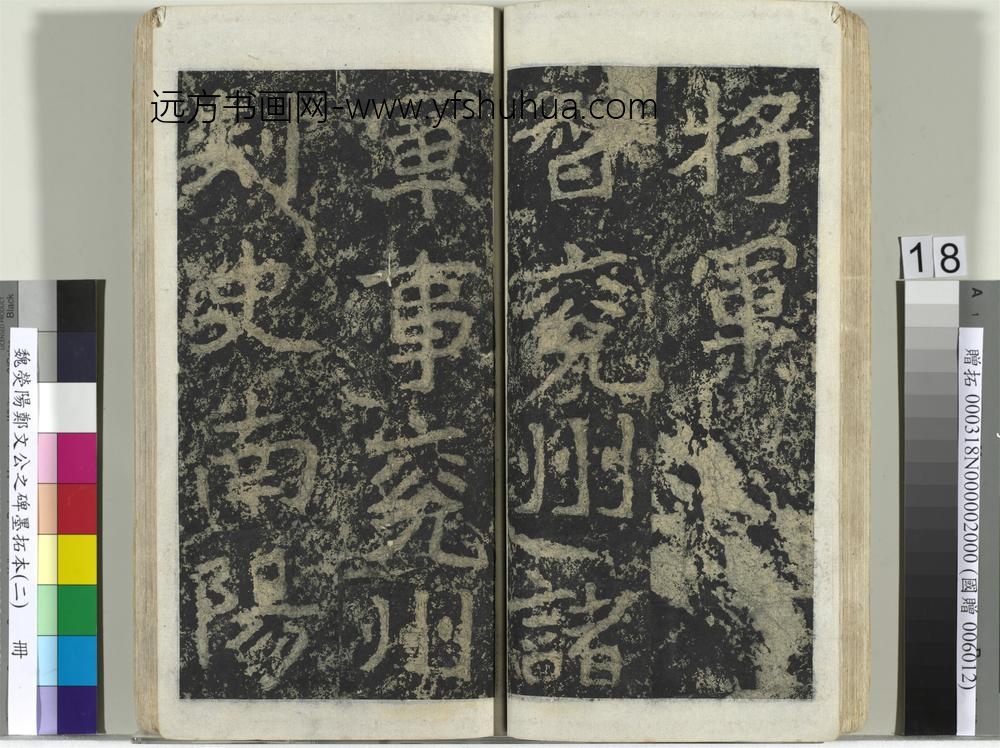 将軍
督兖州諸
軍事兖州
刾史南陽
远方书画网-www.yfshuhua.com
18
魏滎陽鄭文公之碑墨拓本(二) 冊
贈拓 000318N000002000(國贈 006012)